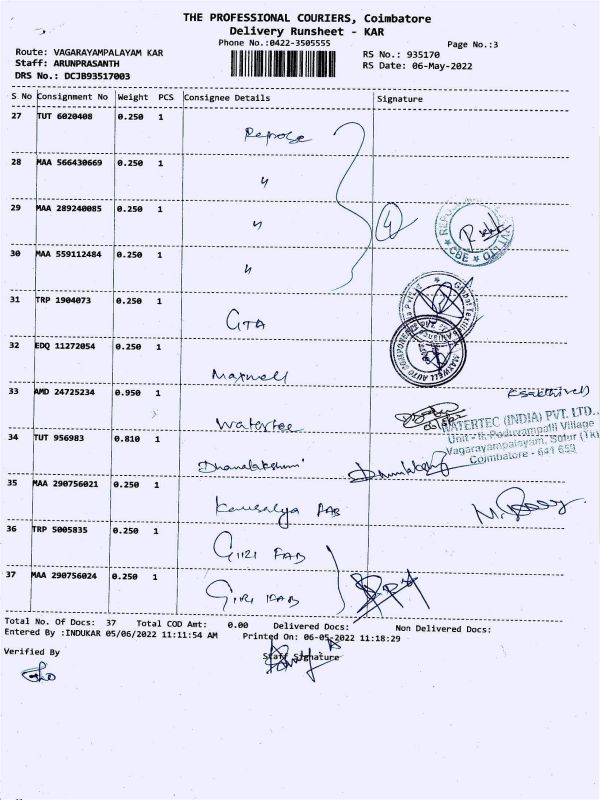 THE PROFESSIONAL COURIERS, Coimbatore
Delivery Runsheet - KAR
Phone No.:0422-3505555
Page No.:3
Route: VAGARAYAMPALAYAM KAR
RS No.: 935170
Staff: ARUNPRASANTH
RS Date: 06-May-2022
DRS No.: DCJB93517003
S No Consignment No Weight PCS Consignee Details Signature
27 TUT 6020408 0.250 1 Repose
28 MAA 566430669 0.250 1 "
29 MAA 289240085 0.250 1 " 4
30 MAA 559112484 0.250 1 "
31 TRP 1904073 0.250 1 GTA
32 EDQ 11272054 0.250 1 Maxwell
33 AMD 24725234 0.950 1 Watertec
34 TUT 956983 0.810 1 Dhanalakshmi
35 MAA 290756021 0.250 1 Kousalya FAB
36 TRP 5005835 0.250 1 GIRI FAB
37 MAA 290756024 0.250 1 GIRI FAB
CBE
MAXWELL AUTO COMPONENTS
WATERTEC (INDIA) PVT. LTD.,
Unit - II, Poduvampalli Village
Vagarayampalayam, Sulur (Tk)
Coimbatore - 641 659
Total No. Of Docs: 37 Total COD Amt: 0.00 Delivered Docs: Non Delivered Docs:
Entered By :INDUKAR 05/06/2022 11:11:54 AM Printed On: 06-05-2022 11:18:29
Verified By
Staff Signature